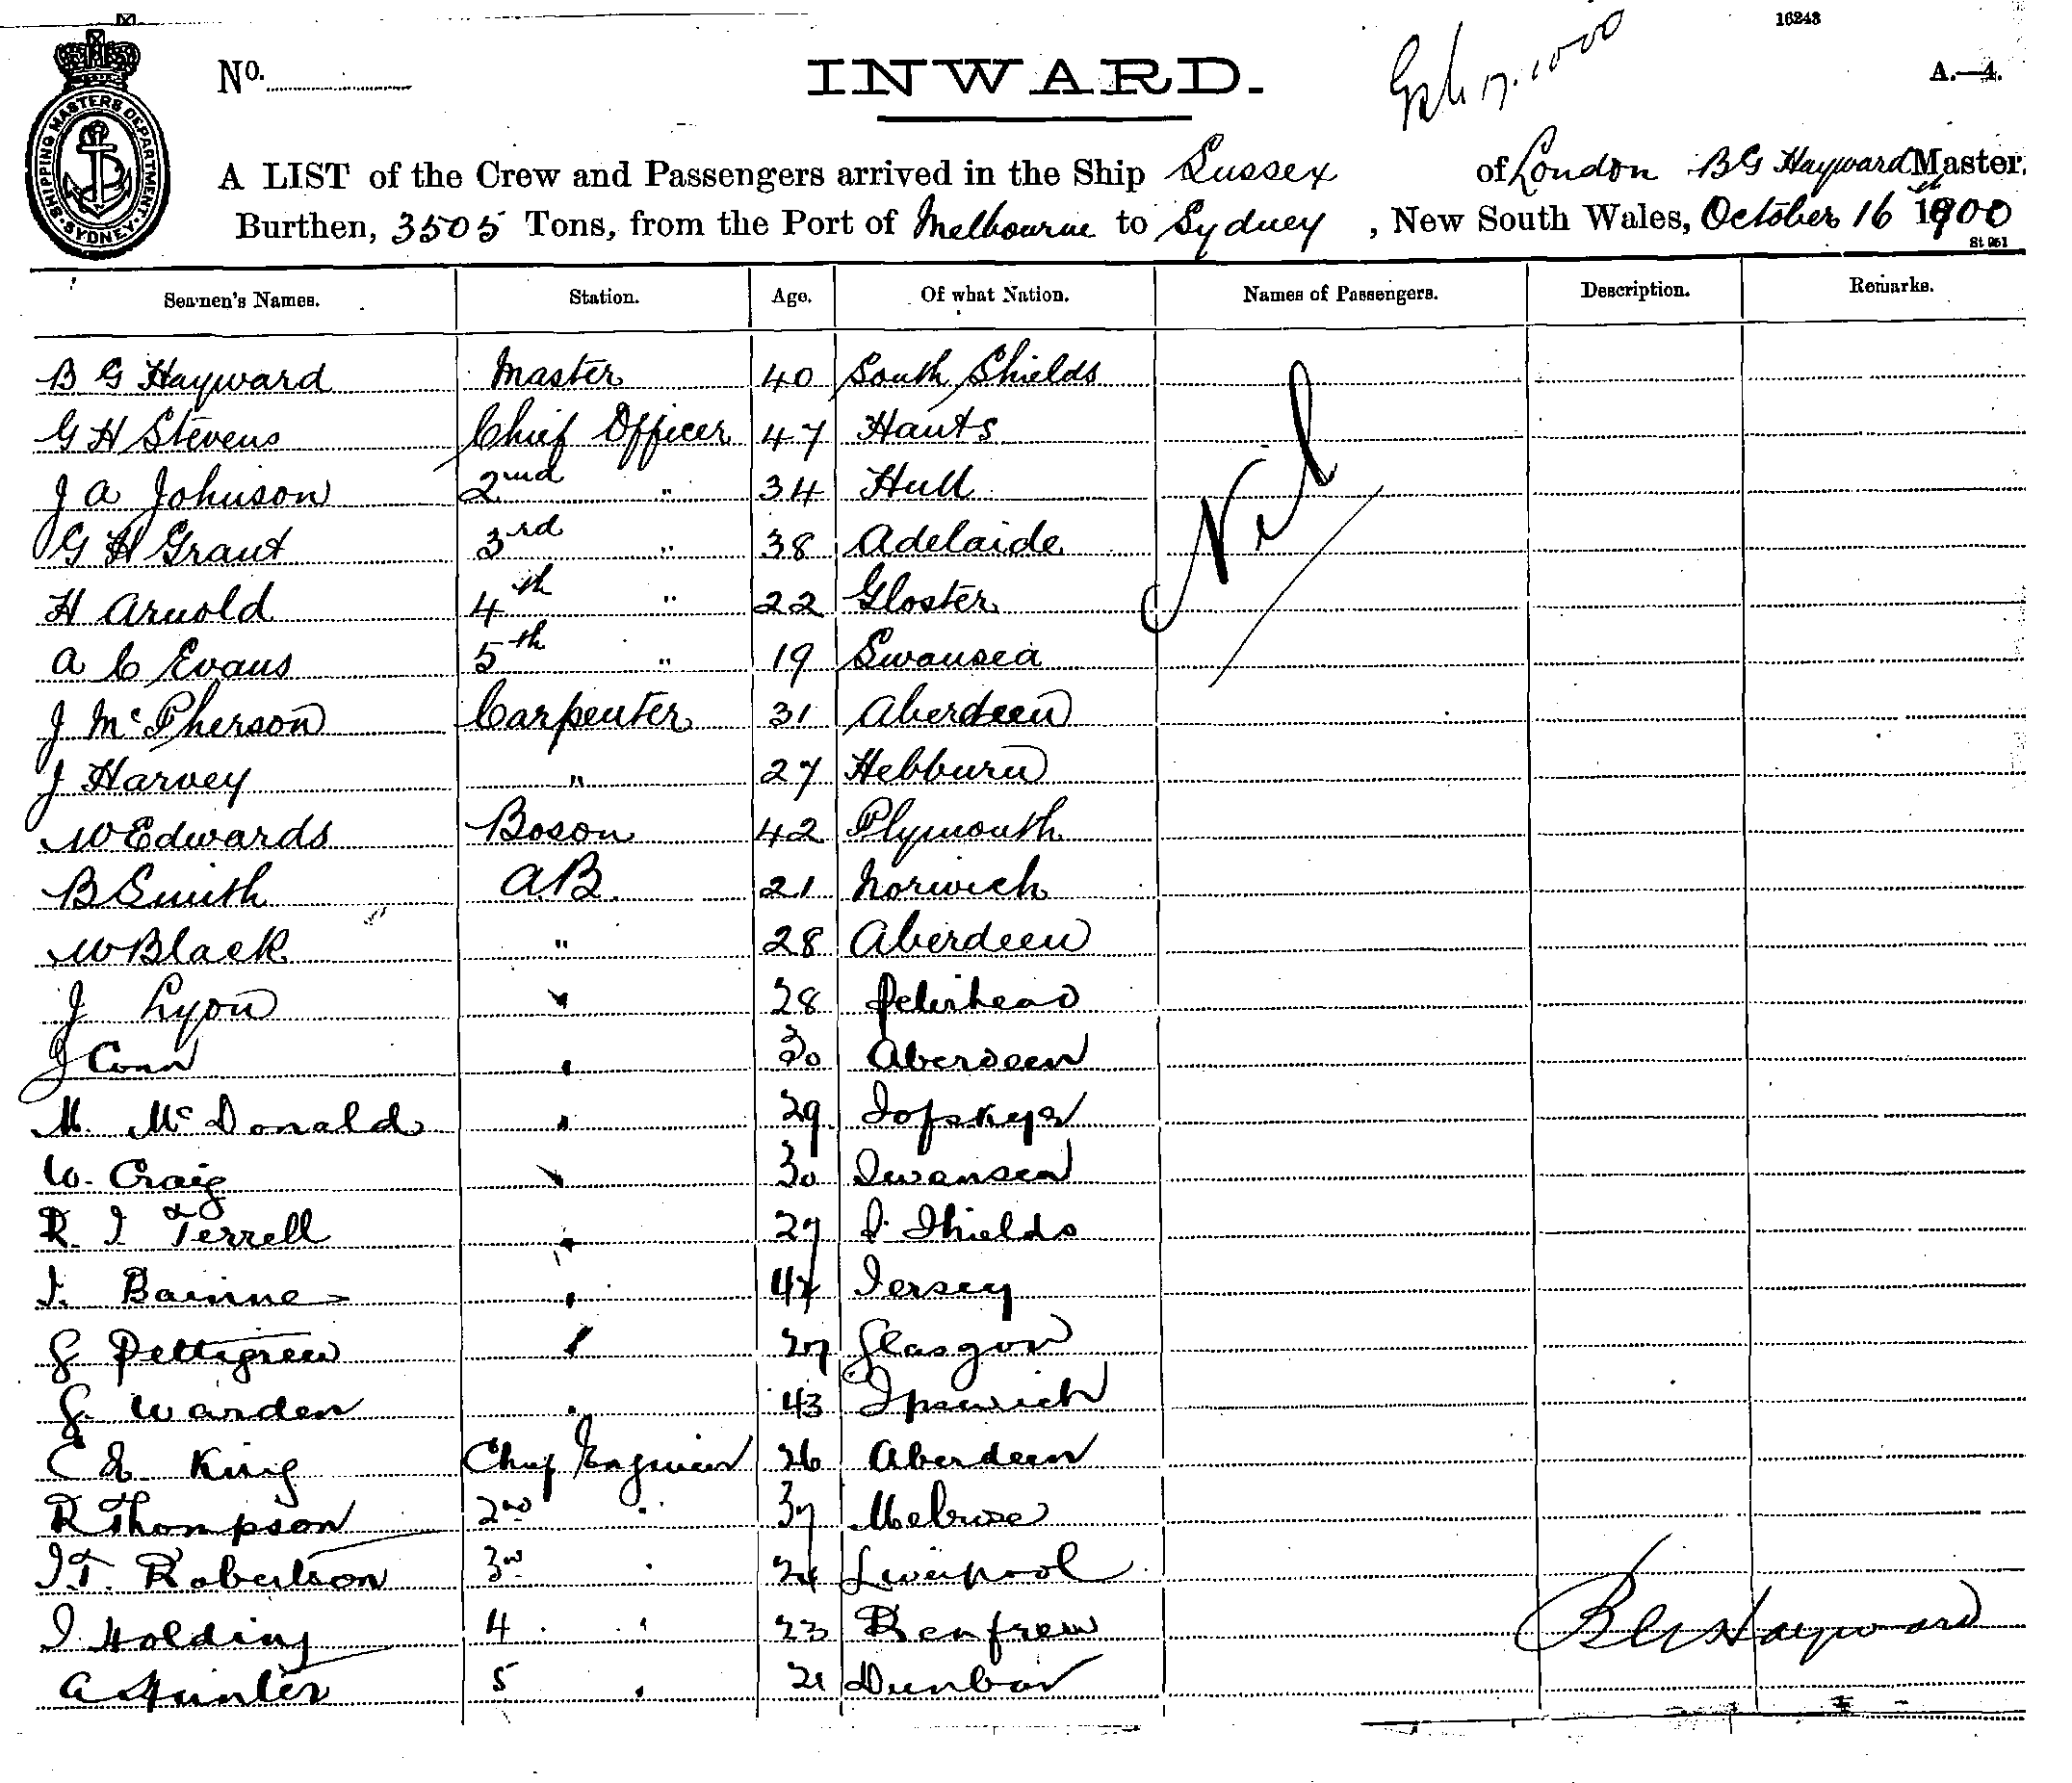 16243
No.
INWARD.
A.—4.
SHIPPING MASTERS DEPARTMENT. SYDNEY.
A LIST of the Crew and Passengers arrived in the Ship Sussex of London B G Hayward Master.
Burthen, 3505 Tons, from the Port of Melbourne to Sydney, New South Wales, October 16th 1900
St 951
Seamen's Names. Station. Age. Of what Nation. Names of Passengers. Description. Remarks.
B G Hayward Master 40 South Shields
Nil
G H Stevens Chief Officer 47 Hants
J A Johnson 2nd " 34 Hull
G H Grant 3rd " 38 Adelaide
H Arnold 4th " 22 Gloster
A C Evans 5th " 19 Swansea
J McPherson Carpenter 31 Aberdeen
J Harvey " 27 Hebburn
W Edwards Boson 42 Plymouth
B Smith A.B. 21 Norwich
W Black " 28 Aberdeen
J Lyon " 28 Peterhead
J Conn " 30 Aberdeen
M. McDonald " 29
W. Craig " 30 Swansea
R. J Terrell " 27 S. Shields
" Jersey
G Pettigrew " 27 Glasgow
G. Warden " 43 Ipswich
C E King Chief Engineer 26 Aberdeen
R Thompson 2nd " 37 Melrose
J.T. Robertson 3rd " 24 Liverpool
J Holding 4 " 23 Renfrew
A Hunter 5 " 21 Dunbar
B G Hayward